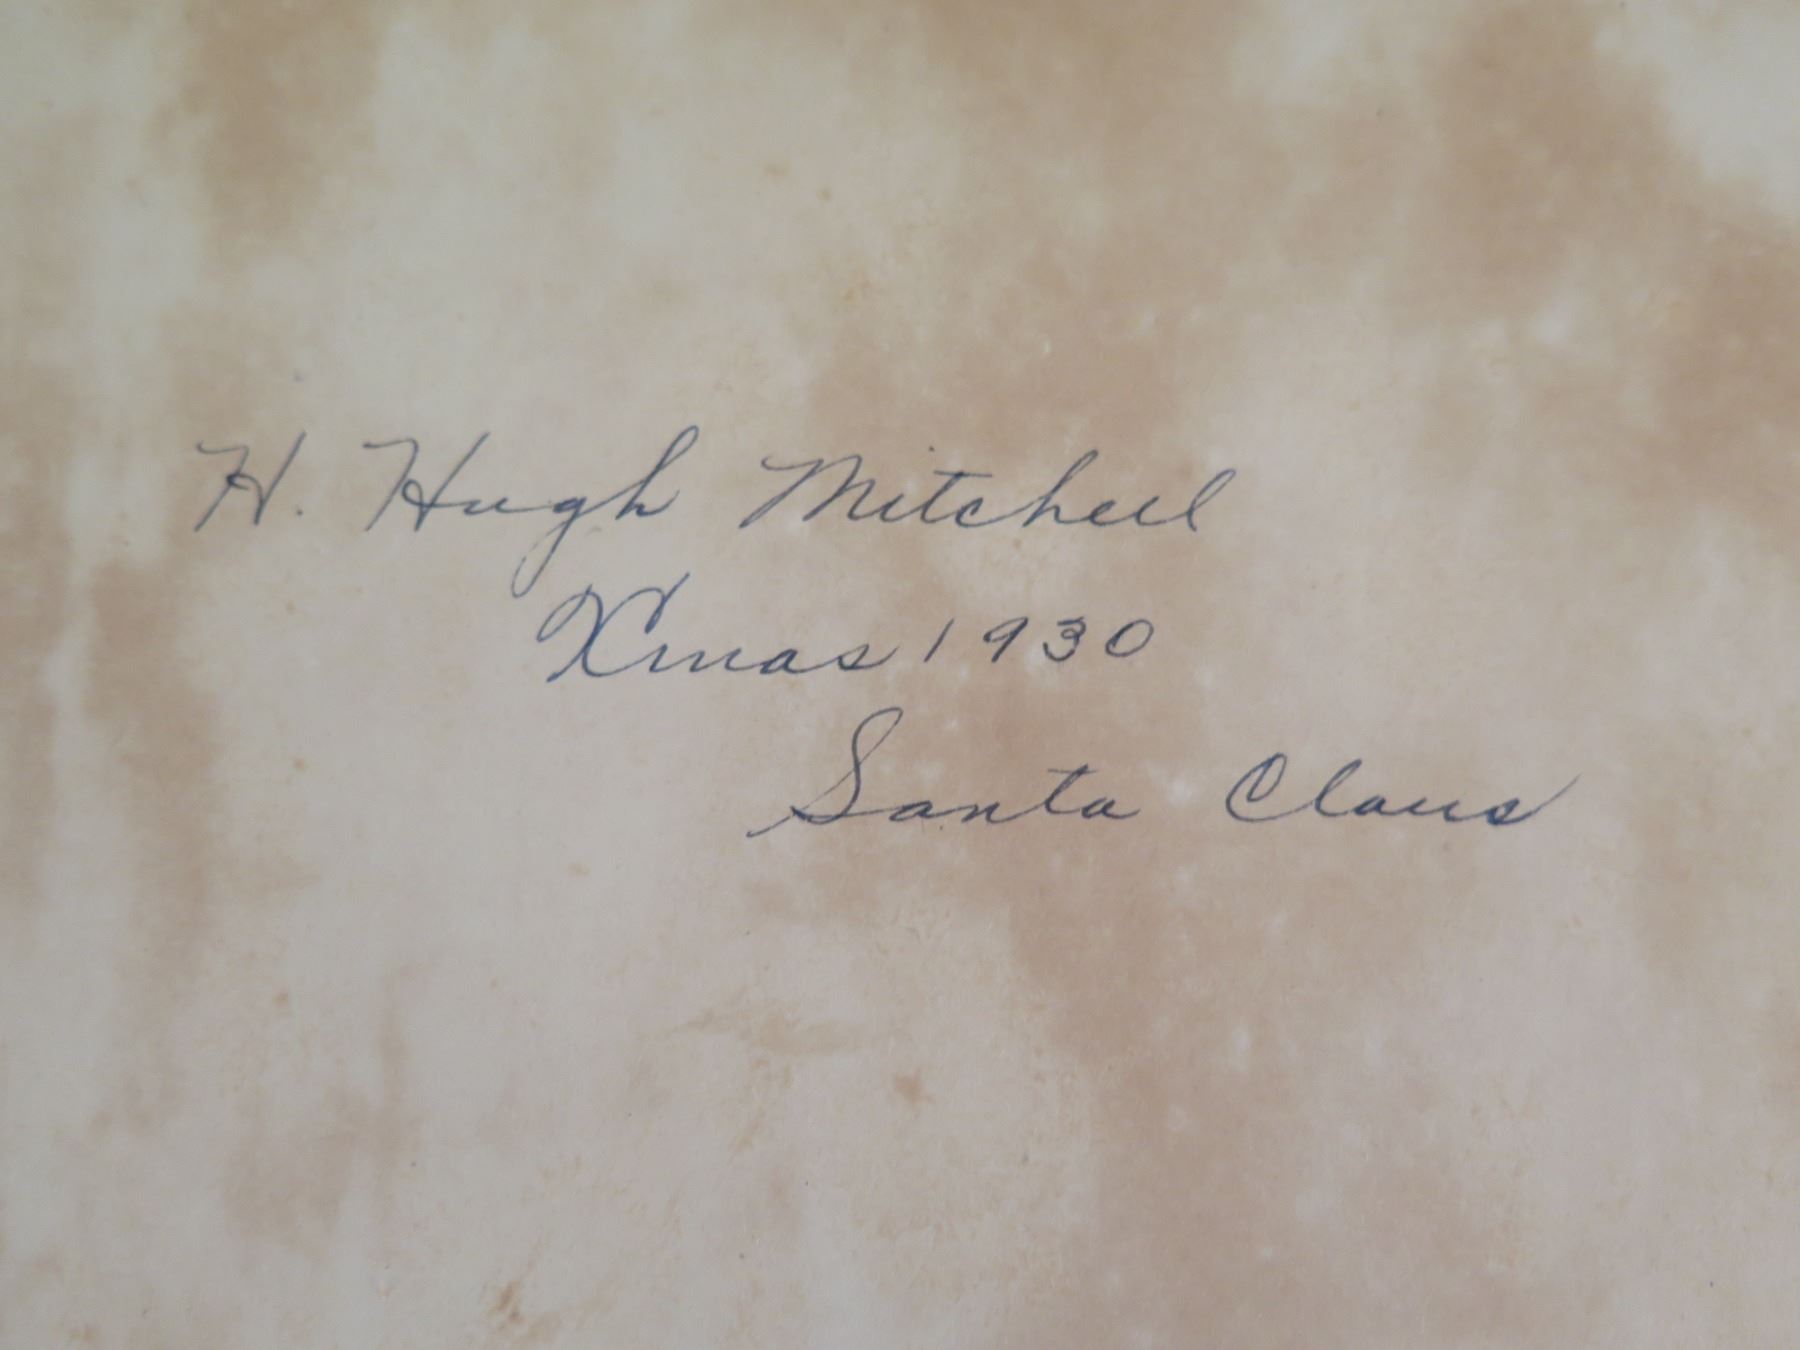 H. Hugh Mitchell
Xmas 1930
Santa Claus